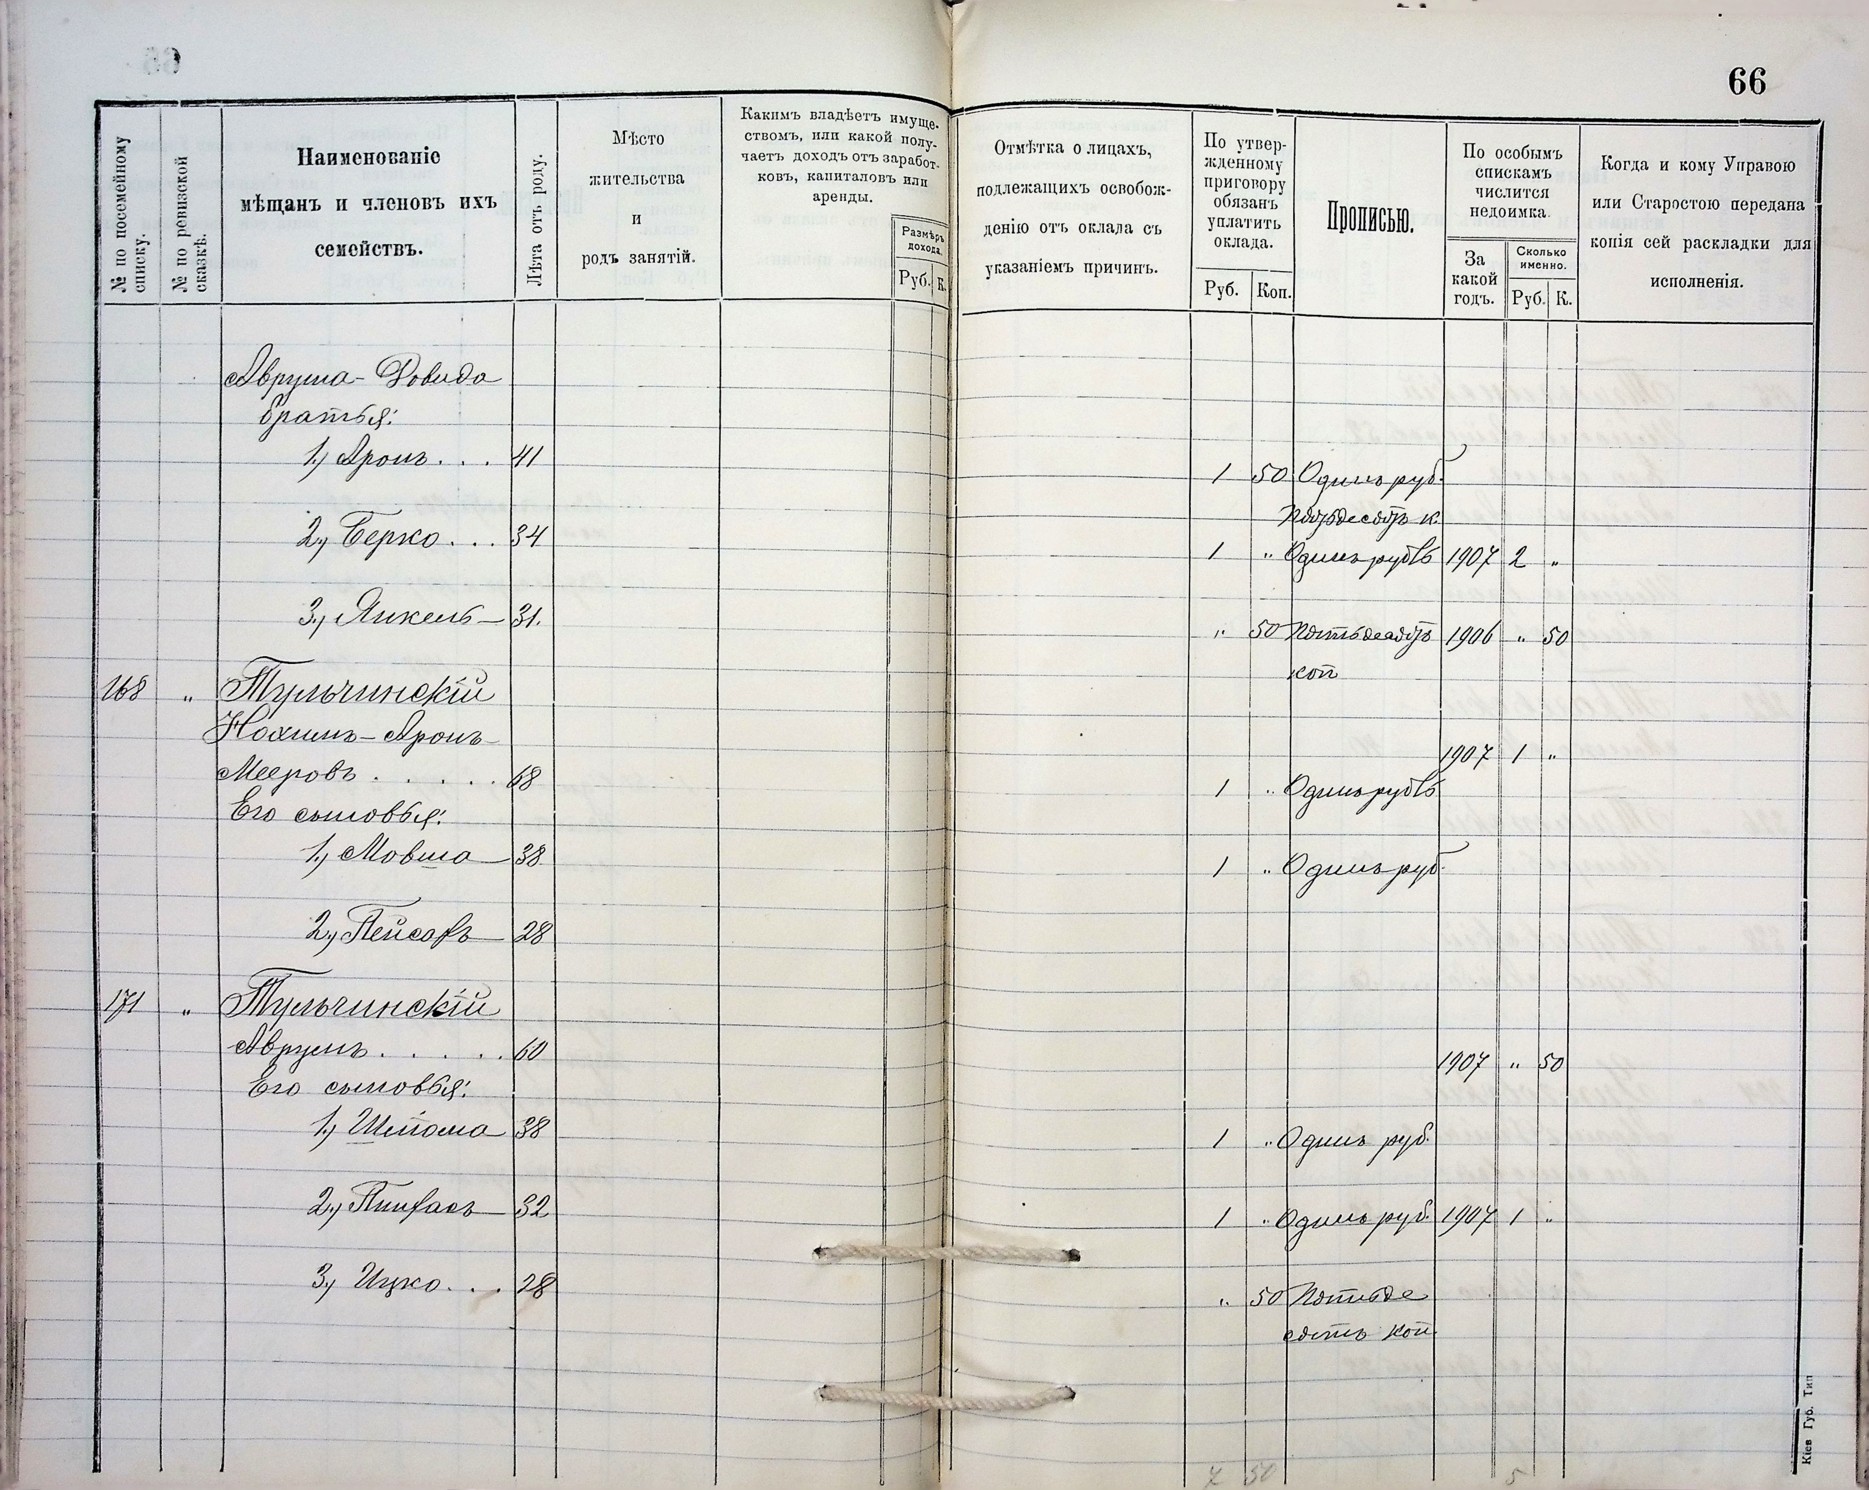 66
№ по посемейному списку.
№ по ревизской сказкѣ.
Наименованіе
мѣщанъ и членовъ ихъ
семействъ.
Лѣта отъ роду.
Мѣсто
жительства
и
родъ занятій.
Какимъ владѣетъ имуще-
ствомъ, или какой полу-
чаетъ доходъ отъ заработ-
ковъ, капиталовъ или
аренды.
Размѣръ
дохода.
Руб. К.
Отмѣтка о лицахъ,
подлежащихъ освобож-
денію отъ оклада съ
указаніемъ причинъ.
По утвер-
жденному
приговору
обязанъ
уплатить
оклада.
Руб. Коп.
Прописью.
По особымъ
спискамъ
числится
недоимка.
За
какой
годъ.
Сколько
именно.
Руб. К.
Когда и кому Управою
или Старостою передана
копія сей раскладки для
исполненія.
Аврума-Довида
братья:
1, Аронъ . . . 41 1 50 Одинъ руб.
пятьдесятъ к.
2, Берко . . . 34 1 " Одинъ рубль 1907 2 "
3, Янкель — 31. " 50 Пятьдесятъ 1906 " 50
коп
168 " Тульчинскій
Нохимъ-Аронъ
1907 1 "
Мееровъ . . . . . 68 1 " Одинъ рубль
Его сыновья:
1, Мовша — 38 1 " Одинъ руб.
2, Пейсахъ — 28
171 " Тульчинскій
Аврумъ . . . . . 60 1907 " 50
Его сыновья:
1, Шлиома 38 1 " Одинъ руб.
2, Пинхасъ — 32 1 " Одинъ руб. 1907 1 "
3, Ицко . . . 28 " 50 Пятьде
сятъ коп.
7 50 5
Кіев Губ. Тип